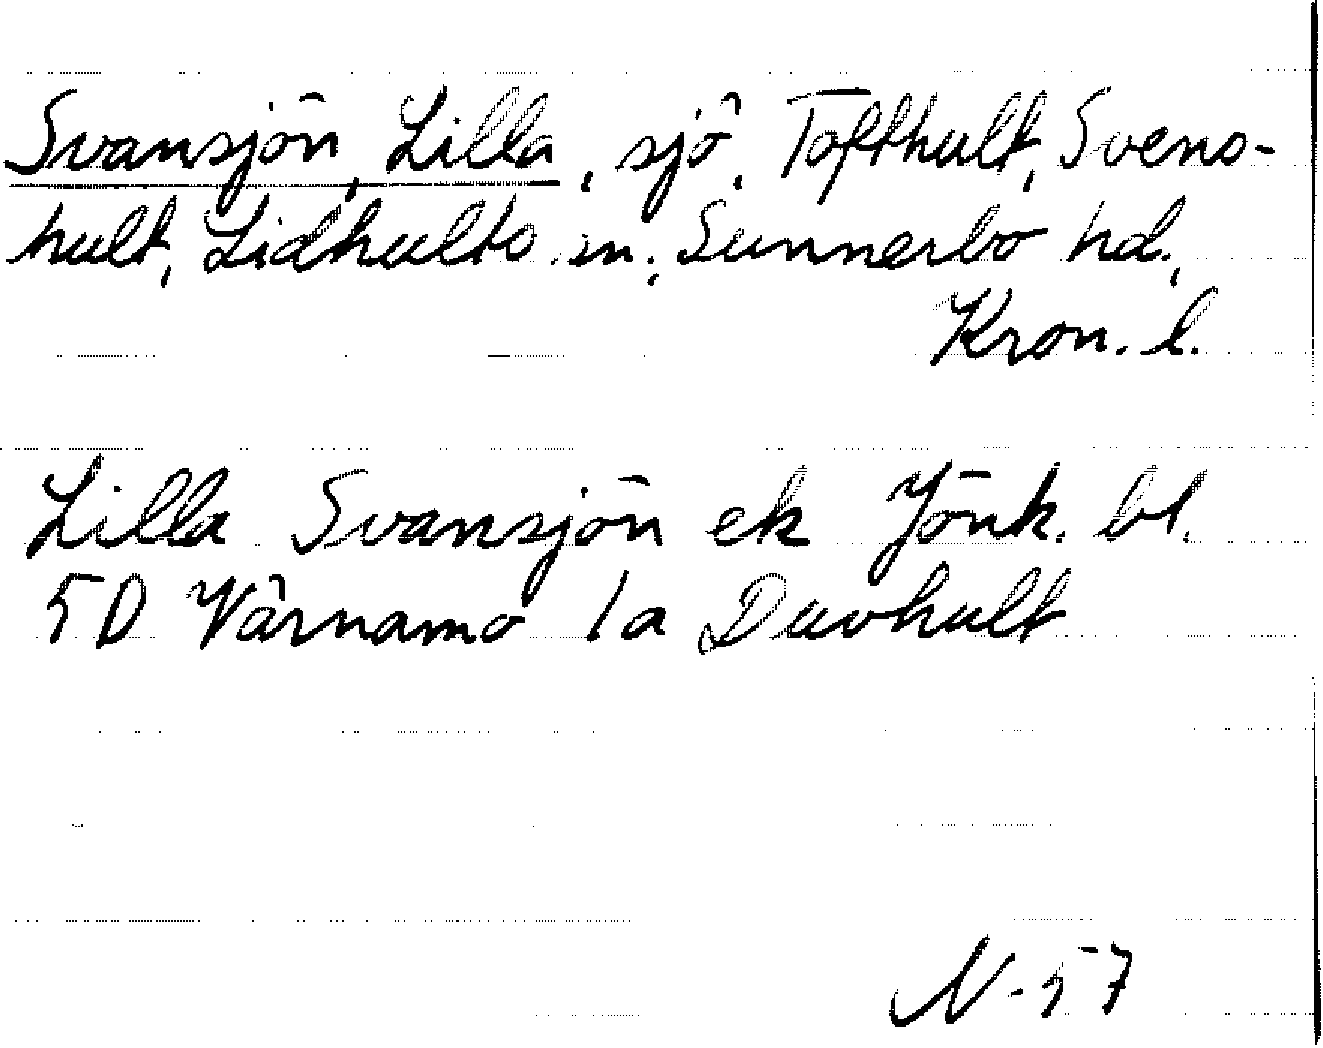 Svansjön, Lilla, sjö, Tofthult, Svens-
hult, Lidhults sn, Sunnerbo hd,
Kron. l.
Lilla Svansjön ek Jönk. bl.
5D Värnamo 1a Duvhult
N-57